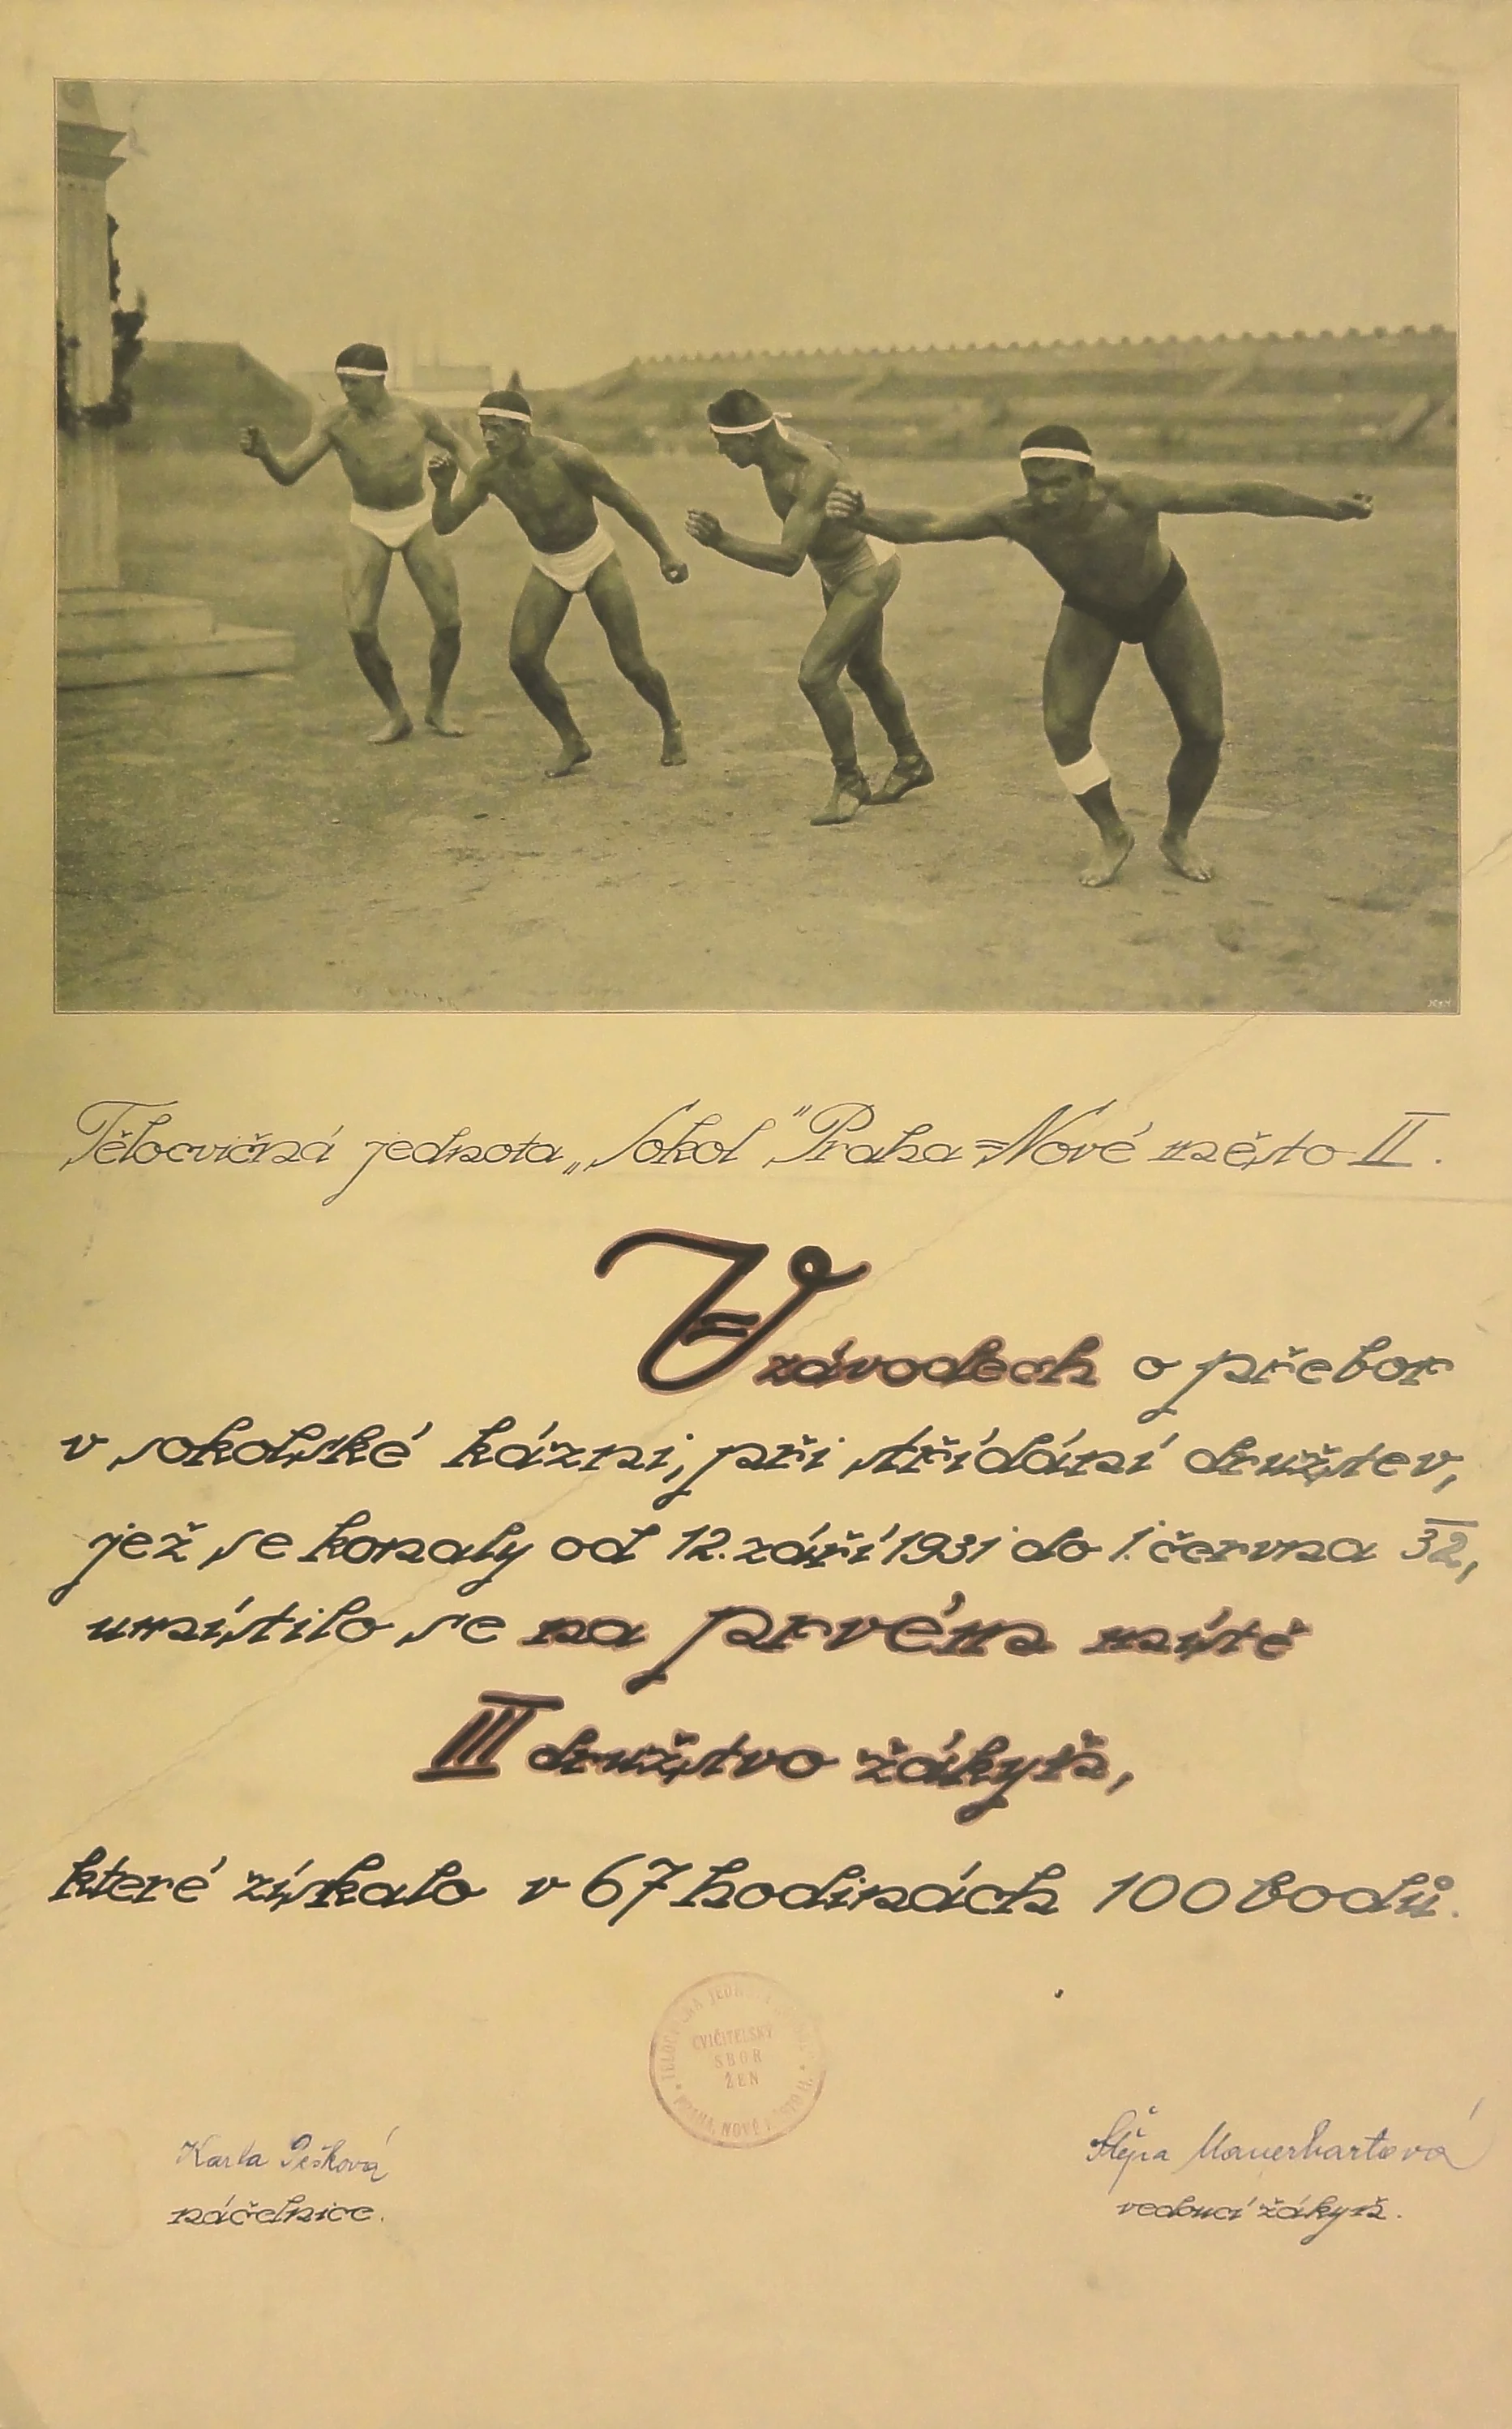 Tělocvičná jednota „Sokol" Praha=Nové město II.
V závodech o přebor
v sokolské kázni, při střídání družstev,
jež se konaly od 12. září 1931 do 1. června 32,
umístilo se na prvém místě
III družstvo žákyň,
které získalo v 67 hodinách 100 bodů.
TĚLOCVIČNÁ JEDNOTA
CVIČITELSKÝ
SBOR
ŽEN
PRAHA, NOVÉ MĚSTO II.
Karla Pešková
náčelnice.
Štěpa Mauerhartová
vedoucí žákyň.